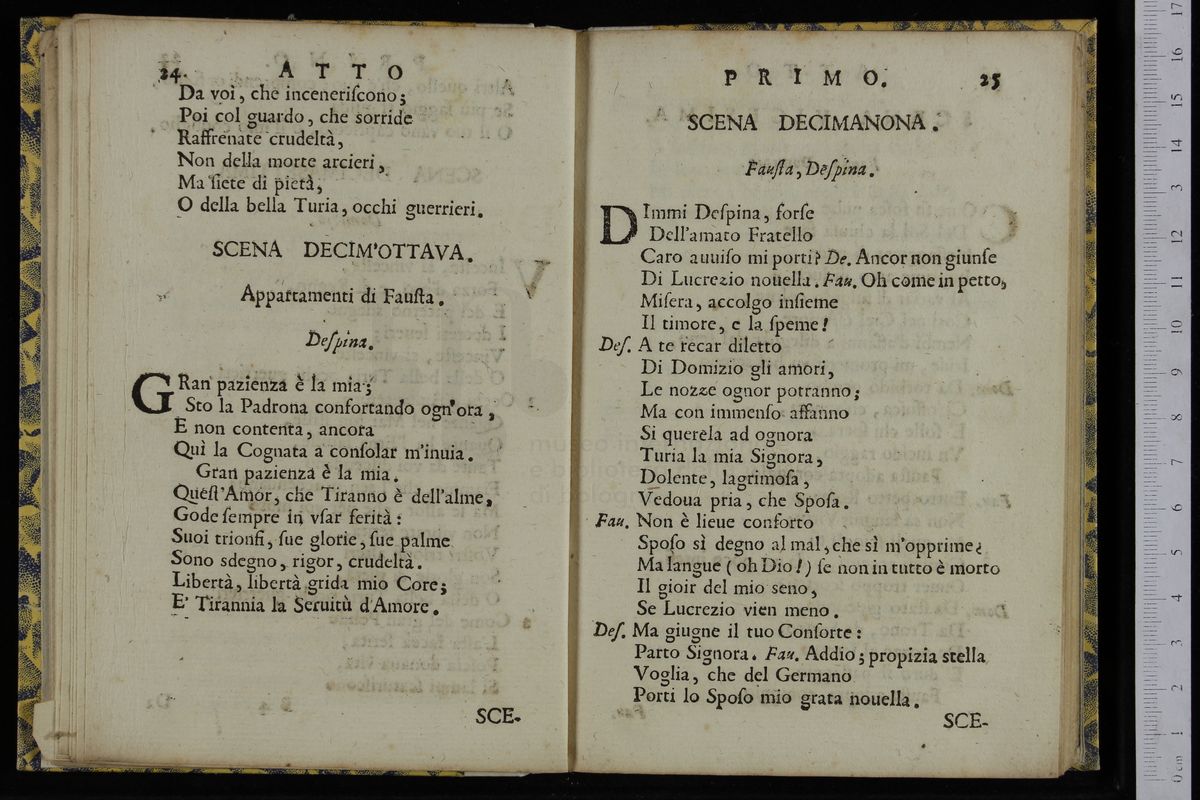 24. ATTO
Da voi, che inceneriſcono;
Poi col guardo, che sorride
Raffrenate crudeltà,
Non della morte arcieri,
Ma ſiete di pietà,
O della bella Turia, occhi guerrieri.
SCENA DECIM'OTTAVA.
Appartamenti di Fauſta.
Deſpina.
GRan pazienza è la mia;
Sto la Padrona confortando ogn'ora,
E non contenta, ancora
Quì la Cognata a conſolar m'inuia.
Gran pazienza è la mia.
Queſt'Amor, che Tiranno è dell'alme,
Gode ſempre in vſar ferità:
Suoi trionfi, ſue glorie, ſue palme
Sono sdegno, rigor, crudeltà.
Libertà, libertà grida mio Core;
E' Tirannia la Seruitù d'Amore.
SCE-
PRIMO. 25
SCENA DECIMANONA.
Fauſta, Deſpina.
DImmi Deſpina, forſe
Dell'amato Fratello
Caro auuiſo mi porti? De. Ancor non giunſe
Di Lucrezio nouella. Fau. Oh come in petto,
Miſera, accolgo inſieme
Il timore, e la ſpeme!
Deſ. A te recar diletto
Di Domizio gli amori,
Le nozze ognor potranno;
Ma con immenſo affanno
Si querela ad ognora
Turia la mia Signora,
Dolente, lagrimoſa,
Vedoua pria, che Spoſa.
Fau. Non è lieue conforto
Spoſo sì degno al mal, che sì m'opprime;
Ma langue (oh Dio!) ſe non in tutto è morto
Il gioir del mio seno,
Se Lucrezio vien meno.
Deſ. Ma giugne il tuo Conſorte:
Parto Signora. Fau. Addio; propizia stella
Voglia, che del Germano
Porti lo Spoſo mio grata nouella.
SCE-